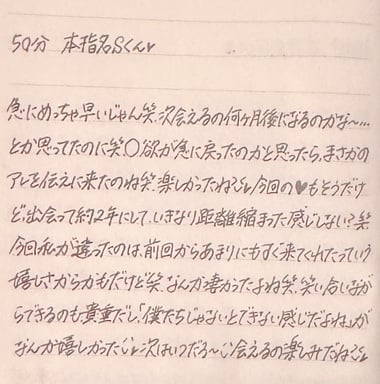 50分 本指名Sくん♥
急にめっちゃ早いじゃん笑.次会えるの何ヶ月後になるのかな〜…
とか思ってたのに笑○欲が急に戻ったのかと思ったら、まさかの
アレを伝えに来たのね笑.楽しかったね今回の♥もそうだけ
ど、出会って約2年にして、いきなり距離縮まった感じしない?笑
今回私が違ったのは、前回からあまりにもすぐ来てくれたっていう
嬉しさからかもだけど笑.なんか凄かったよね笑.笑い合いなが
らできるのも貴重だし、「僕たちじゃないとできない感じだよね」が
なんか嬉しかった次はいつだろ〜会えるの楽しみだね